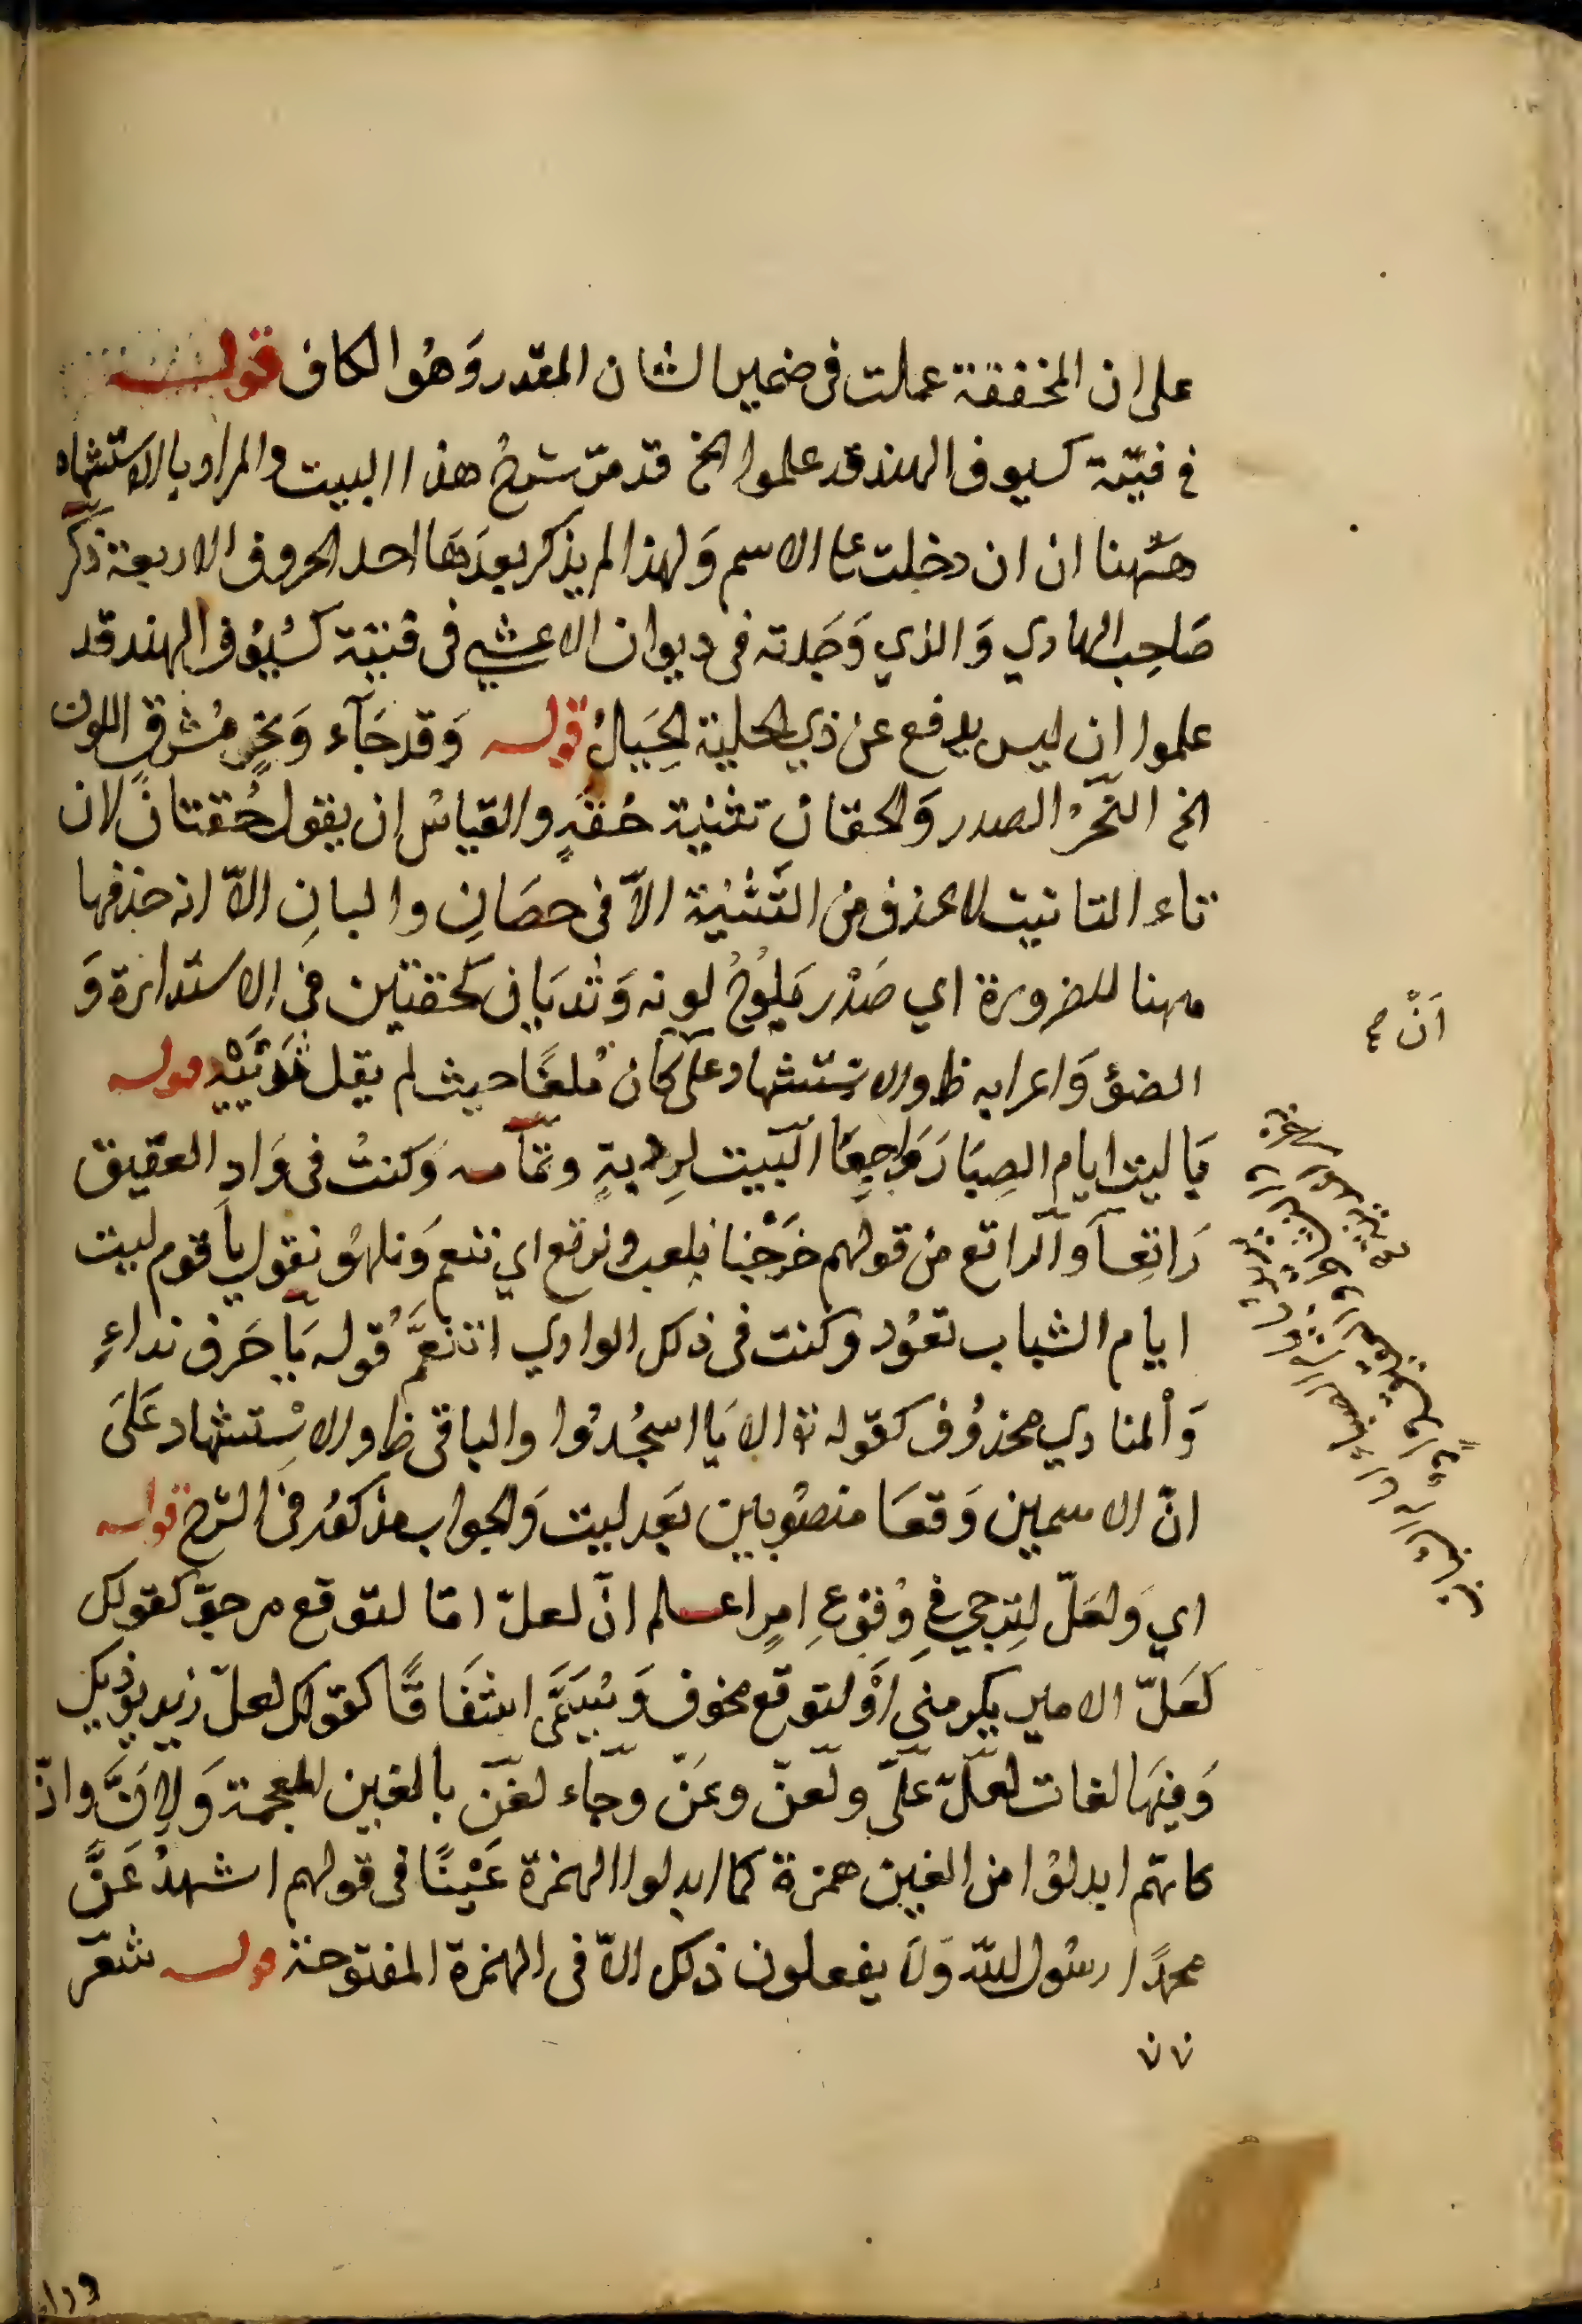 على ان المخففة عملت فى ضمير الشان المقدر وَهُو الكاف قولـــه
فى فتية كسيوف الهند قد علموا الخ قد مرّ شرحُ هذا البيت والمراد بالاستشهاد
هٰهنا ان ان دخلت على الاسم وَلهذا لم يذكر بعدَهَا احد الحروف الاربعة ذكر
صَاحِب الهادي وَالذي وَجَدته فى ديوان الاعشي فى فتية كسُيُوف الهند قد
علموا ان ليس يدفع عن ذي الحلية الحِيَالُ قولـه وَقد جَآء وَنَحْرٍ مُشرق اللون
الخ النّحرُ الصدر وَالحقان تثنية حُقةٍ والقياسُ ان يقول حُقتان لان
تاء التانيث لا تحذف من التَّثنية الاّ فى خصَانِ واليانِ الاّ انه حذفها
ههنا للضرورة اي صَدْر يَلُوحُ لونه وَثديَان كحقتين فى الاستدارة وَ
الضوؤ وَاعرابه ظ والاستشهاد على كانْ مُلغًا حيث لم يقل ثَدْيَيْهِ قولـه
يَا ليت ايام الصِبَا رَوَاجِعَا البَيت لِرؤبةٍ وتمَآمـه وَكنتُ فى وَادِ العَقيق
رَاتِعَاً وَالراتع من قولهم خَرَجْنا نلعب ونرتع اي ننعم وَنلهُو نقول يا قوم ليت
ايام الشباب تعُود وكنت فى ذلك الوادي اتنعَّمُ قوله يَا حَرف نداءٍ
وَالمنادي محذوُف كقوله تع الا يَا اسجُدُوا والباقى ظ والاسْتشهاد عَلَى
انّ الاسمين وَقعَا منصُوبين بَعد ليت وَالجواب مذكوُر فى الشرح قولـه
اي وَلعَلّ لِتَرجي فِي وُقوُعِ امرٍ اعـلم انّ لعلّ امّا لتوقع مرجوّ كقولك
لعَلّ الامير يكرمني اَوْ لتوقع مخوف وَيُسَمَّى اشفَاقًا كقولك لعلّ زيد يوذيك
وَفيهَا لغات لعلّ علّ ولعنّ وعنّ وجَاء لغنّ بالغين المعجمة وَلاَنَّ وانّ
كانهّم ابدلوُا من الغين همزة كما ابدلوا الهمزة عَيْنًا فى قولهم اشهدُ عَنَّ
محمدًا رسُول الله وَلا يفعلون ذلك الاّ فى الهمزة المفتوحة قولـه شعر
اَنْ صح